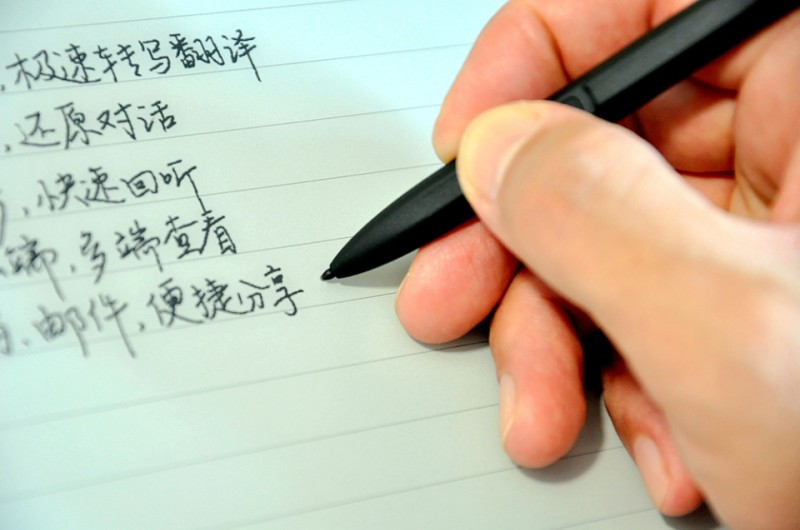 、极速转写翻译
、还原对话
、快速回听
端、多端查看
、邮件、便捷分享